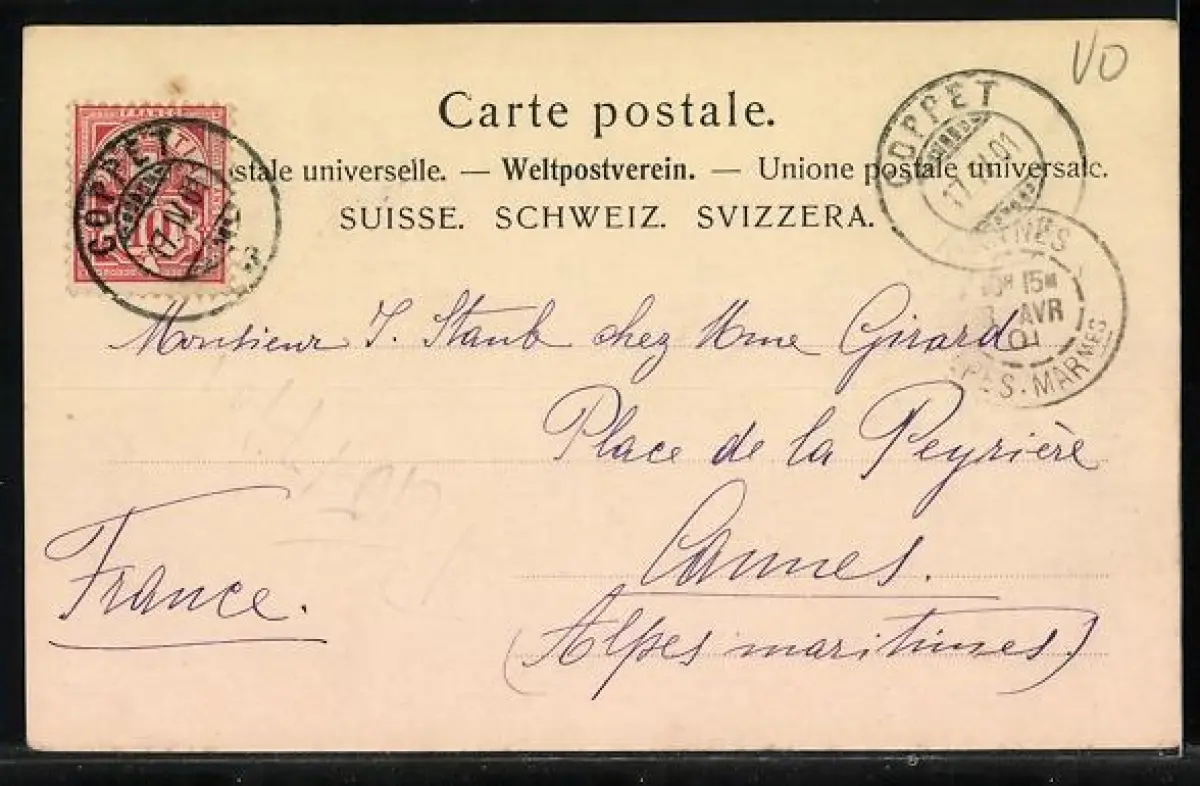 VO
Carte postale.
stale universelle. — Weltpostverein. — Unione postale universale.
SUISSE. SCHWEIZ. SVIZZERA.
FRANCO
10
COPPET
17.IV.01
COPPET
17. 01
CANNES
15M
AVR
01
ALPES-MARMES
Monsieur J. Staub chez Mme Girard
Place de la Peyrière
Cannes.
(Alpes maritimes)
France.